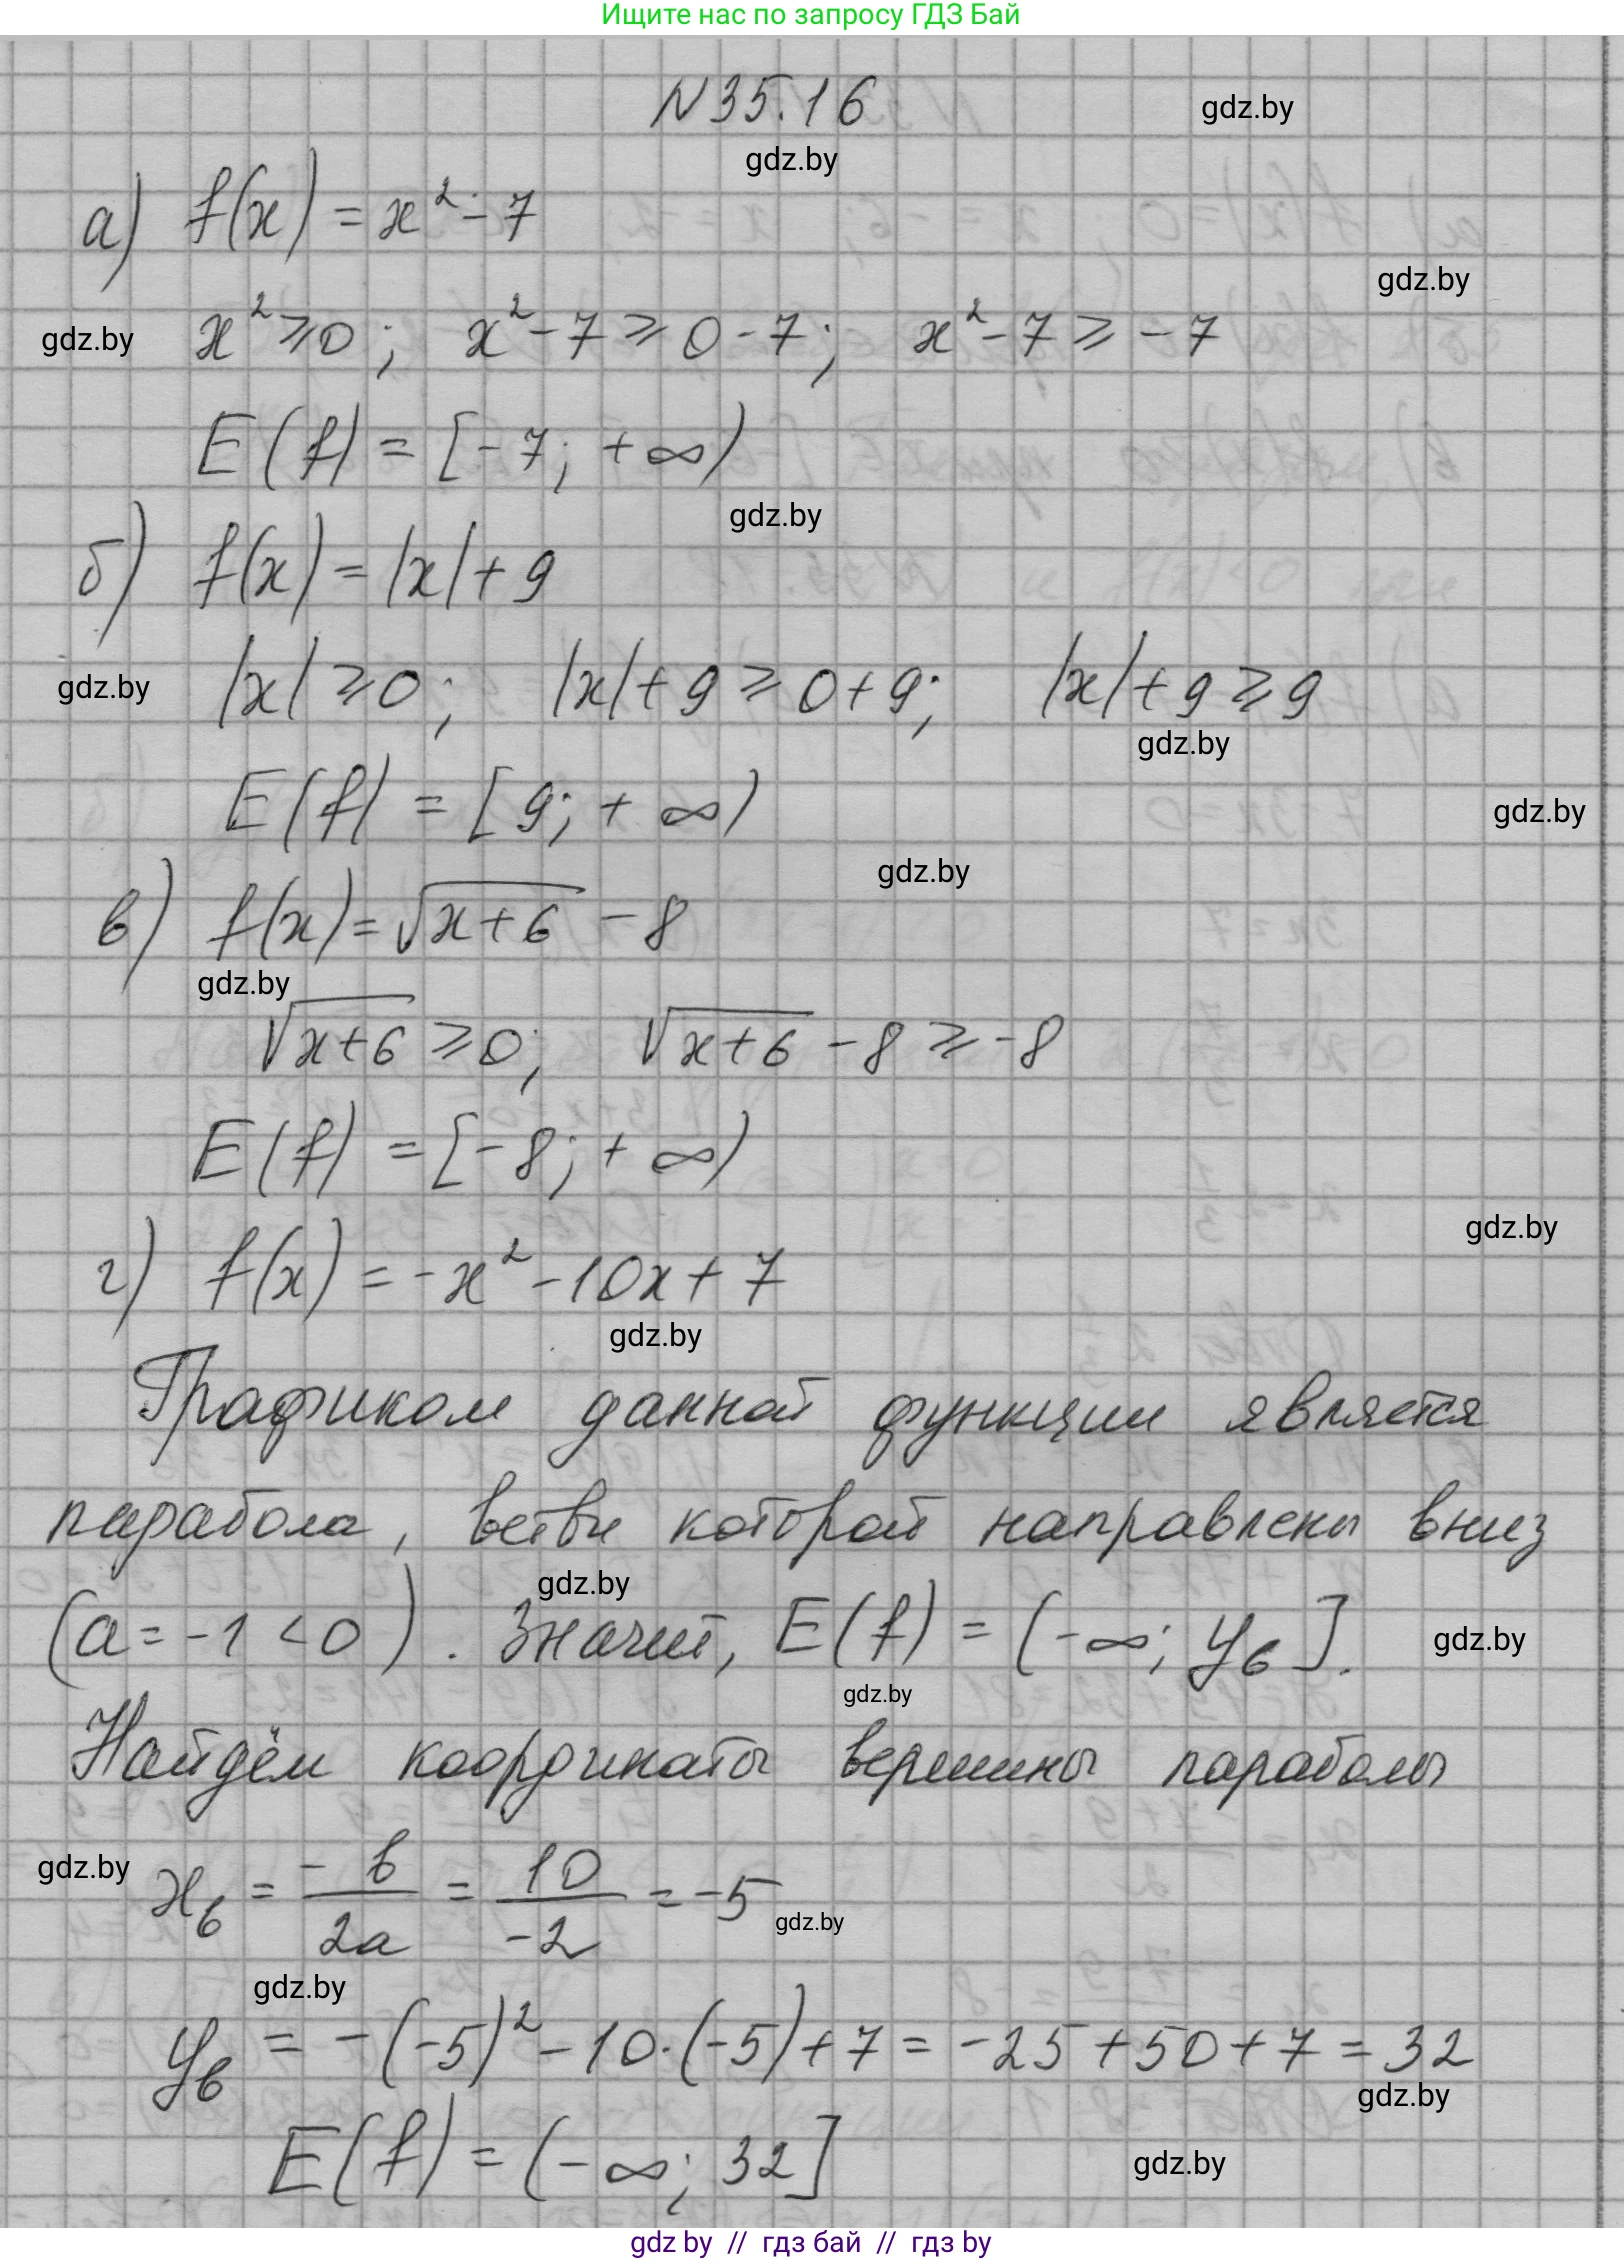 Ищите нас по запросу ГДЗ Бай
N 35.16
gdz.by
gdz.by
а) f(x) = x² - 7
gdz.by
gdz.by x² ⩾ 0; x² - 7 ⩾ 0 - 7; x² - 7 ⩾ - 7
E(f) = [-7; +∞)
gdz.by
б) f(x) = |x| + 9
gdz.by |x| ⩾ 0; |x| + 9 ⩾ 0 + 9; |x| + 9 ⩾ 9
gdz.by
E(f) = [9; +∞)
gdz.by
gdz.by
в) f(x) = √(x+6) - 8
gdz.by
√(x+6) ⩾ 0; √(x+6) - 8 ⩾ -8
E(f) = [-8; +∞)
gdz.by
г) f(x) = -x² - 10x + 7
gdz.by
Графиком данной функции является
парабола, ветви которой направлены вниз
gdz.by
(a = -1 < 0). Значит, E(f) = (-∞; yв].
gdz.by
gdz.by
Найдём координаты вершины параболы
gdz.by xв = -b/2a = 10/-2 = -5
gdz.by
gdz.by
yв = -(-5)² - 10·(-5) + 7 = -25 + 50 + 7 = 32
gdz.by
E(f) = (-∞; 32]
gdz.by
gdz by // гдз бай // гдз by